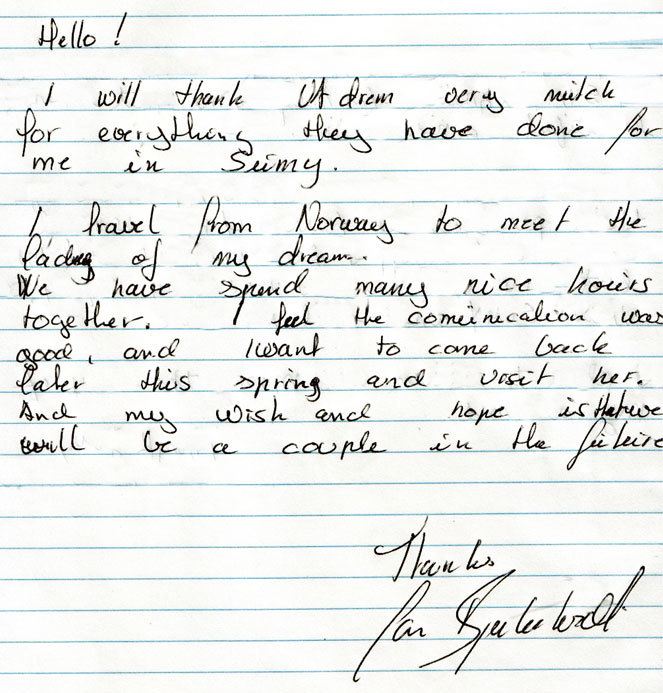 Hello !
I will thank UAdrem very mutch
for everything they have done for
me in Sumy.
I travel from Norway to meet the
lady of my dream.
We have spend many nice hours
together. I feel the comunication was
good, and I want to come back
later this spring and visit her.
And my wish and hope is that we
will be a couple in the future
Thanks
Jan